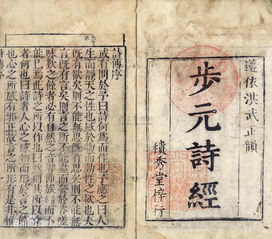 遵依洪武正韻
步元詩經
積秀堂梓行
詩傳序
或有問於予曰詩何爲而作也予應之曰人
生而靜天之性也感於物而動性之欲也夫
既有欲矣則不能無思既有思矣則不能無
言既有言矣則言之所不能盡而發於咨嗟
咏歎之餘者必有自然之音響節族而不
能已焉此詩之所以作也曰然則其所以教
者何也曰詩者人心之感物而形於言之餘
也心之所感有邪正故言之所形有是非